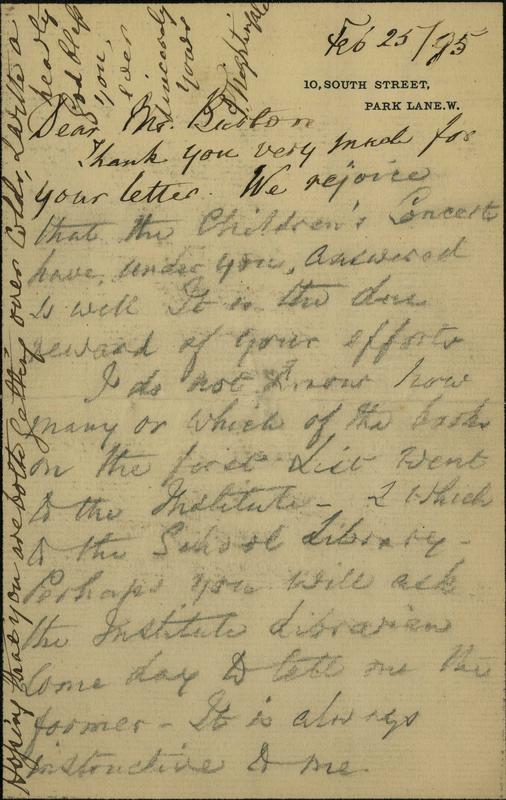 Feb 25/95
10, SOUTH STREET,
PARK LANE. W.
Dear Mr. Burton
Thank you very much for
your letter. We rejoice
that the Children's Concerts
have, under you, answered
so well It is the due
reward of your efforts
I do not know how
many or which of the books
on the first List went
to the Institute - & which
to the School Library -
Perhaps you will ask
the Institute Librarian
some day to tell me the
former - It is always
instructive to me
Hoping that you are both getting over Colds, I write a
hearty
God bless
you,
ever
sincerely
yours
F Nightingale